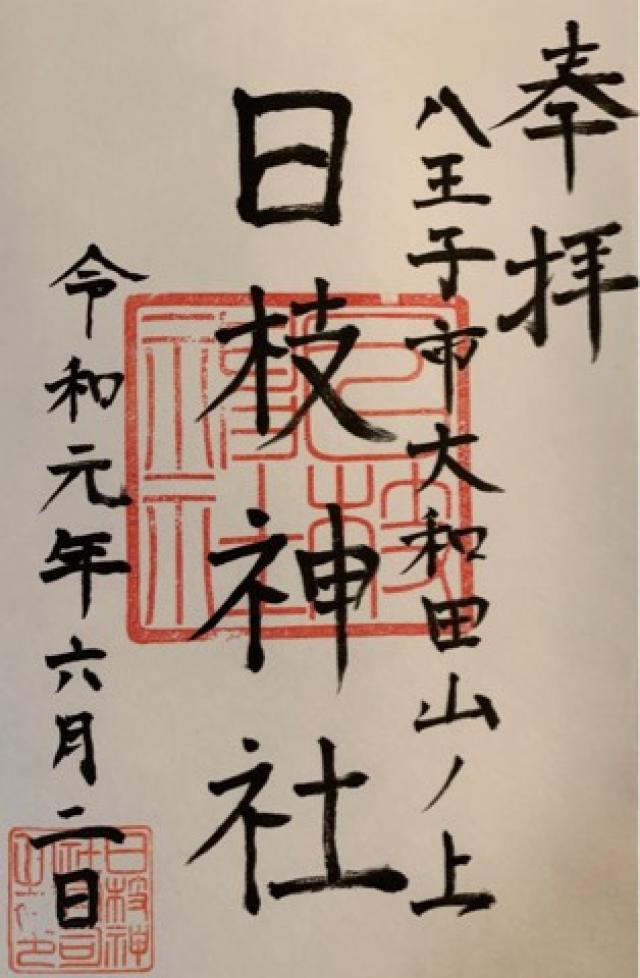 奉拝
八王子市大和田山ノ上
日枝神社
令和元年六月二日